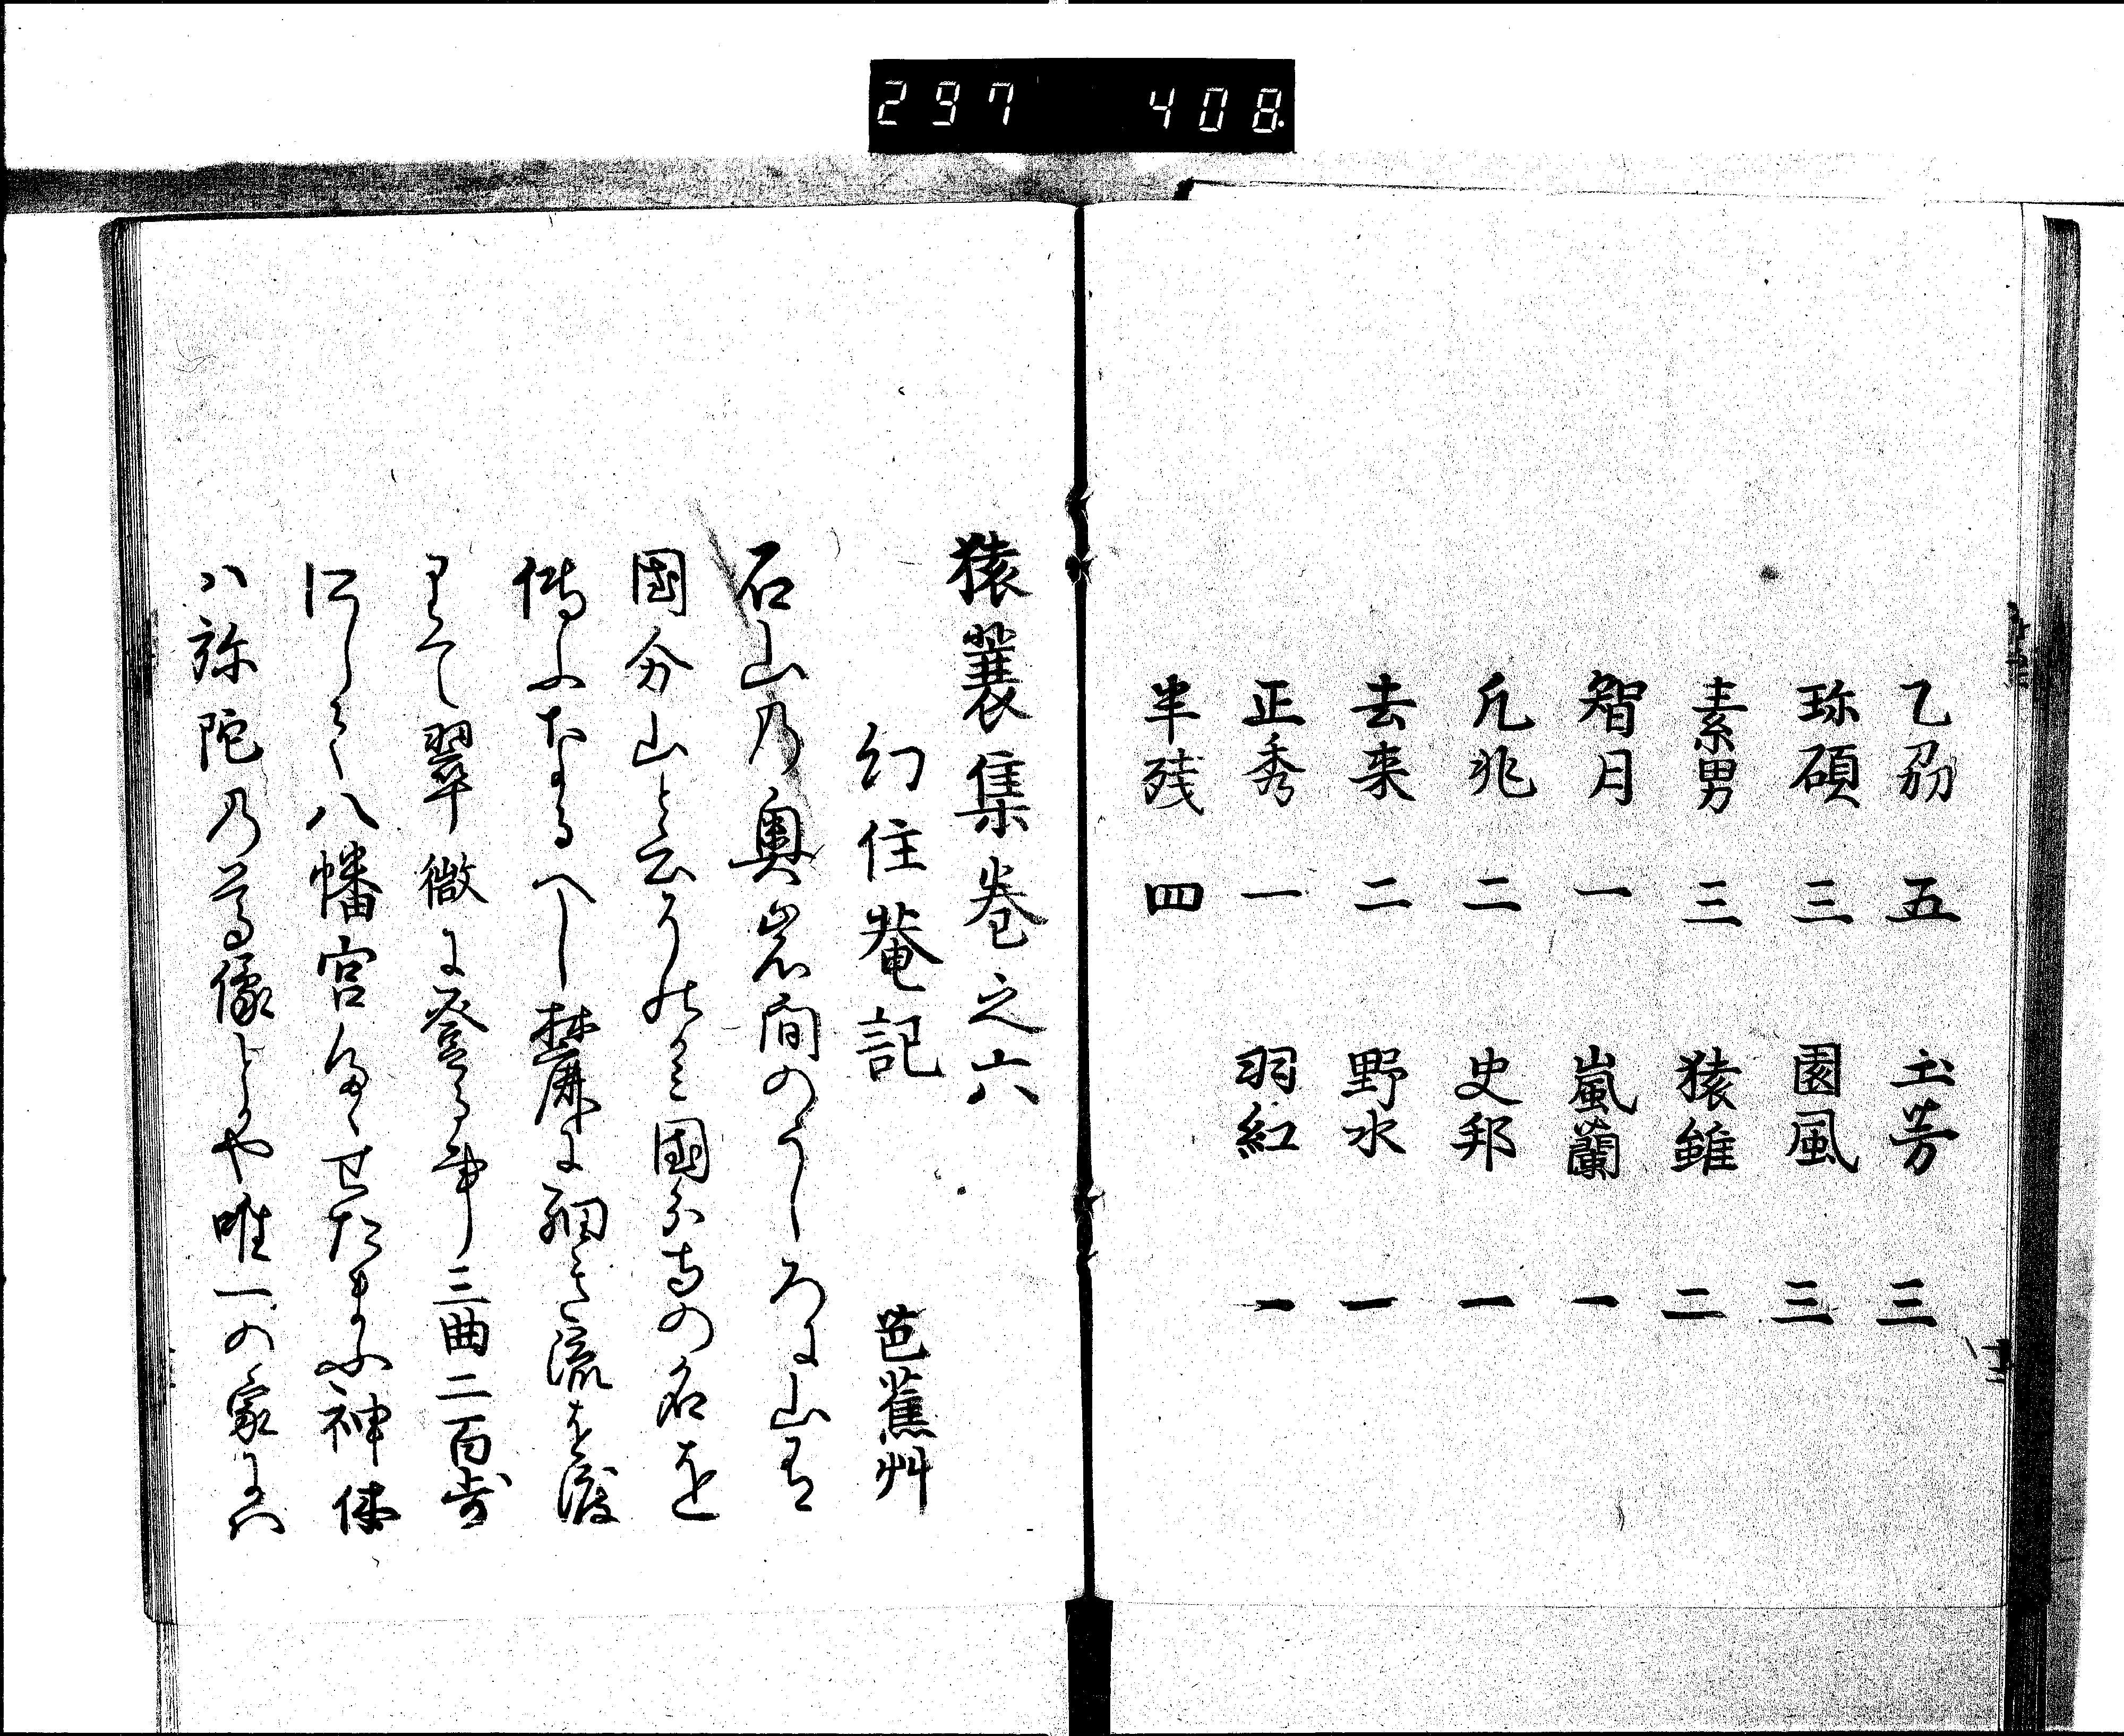 297 408
乙刕 五 土芳 三
珎碩 三 園風 三
素男 三 猿雖 二
智月 一 嵐蘭 一
凡兆 二 史邦 一
去来 二 野水 一
正秀 一 羽紅 一
半残 四
猿蓑集巻之六
幻住菴記 芭蕉艸
石山の奥岩間のうしろに山有
國分山と云そのかミ國分寺の名を
傳ふなるへし麓に細き流を渡
りて翠微に登る事三曲二百歩
にして八幡宮たゝせたまふ神体
ハ弥陀の尊像とかや唯一の家にハ